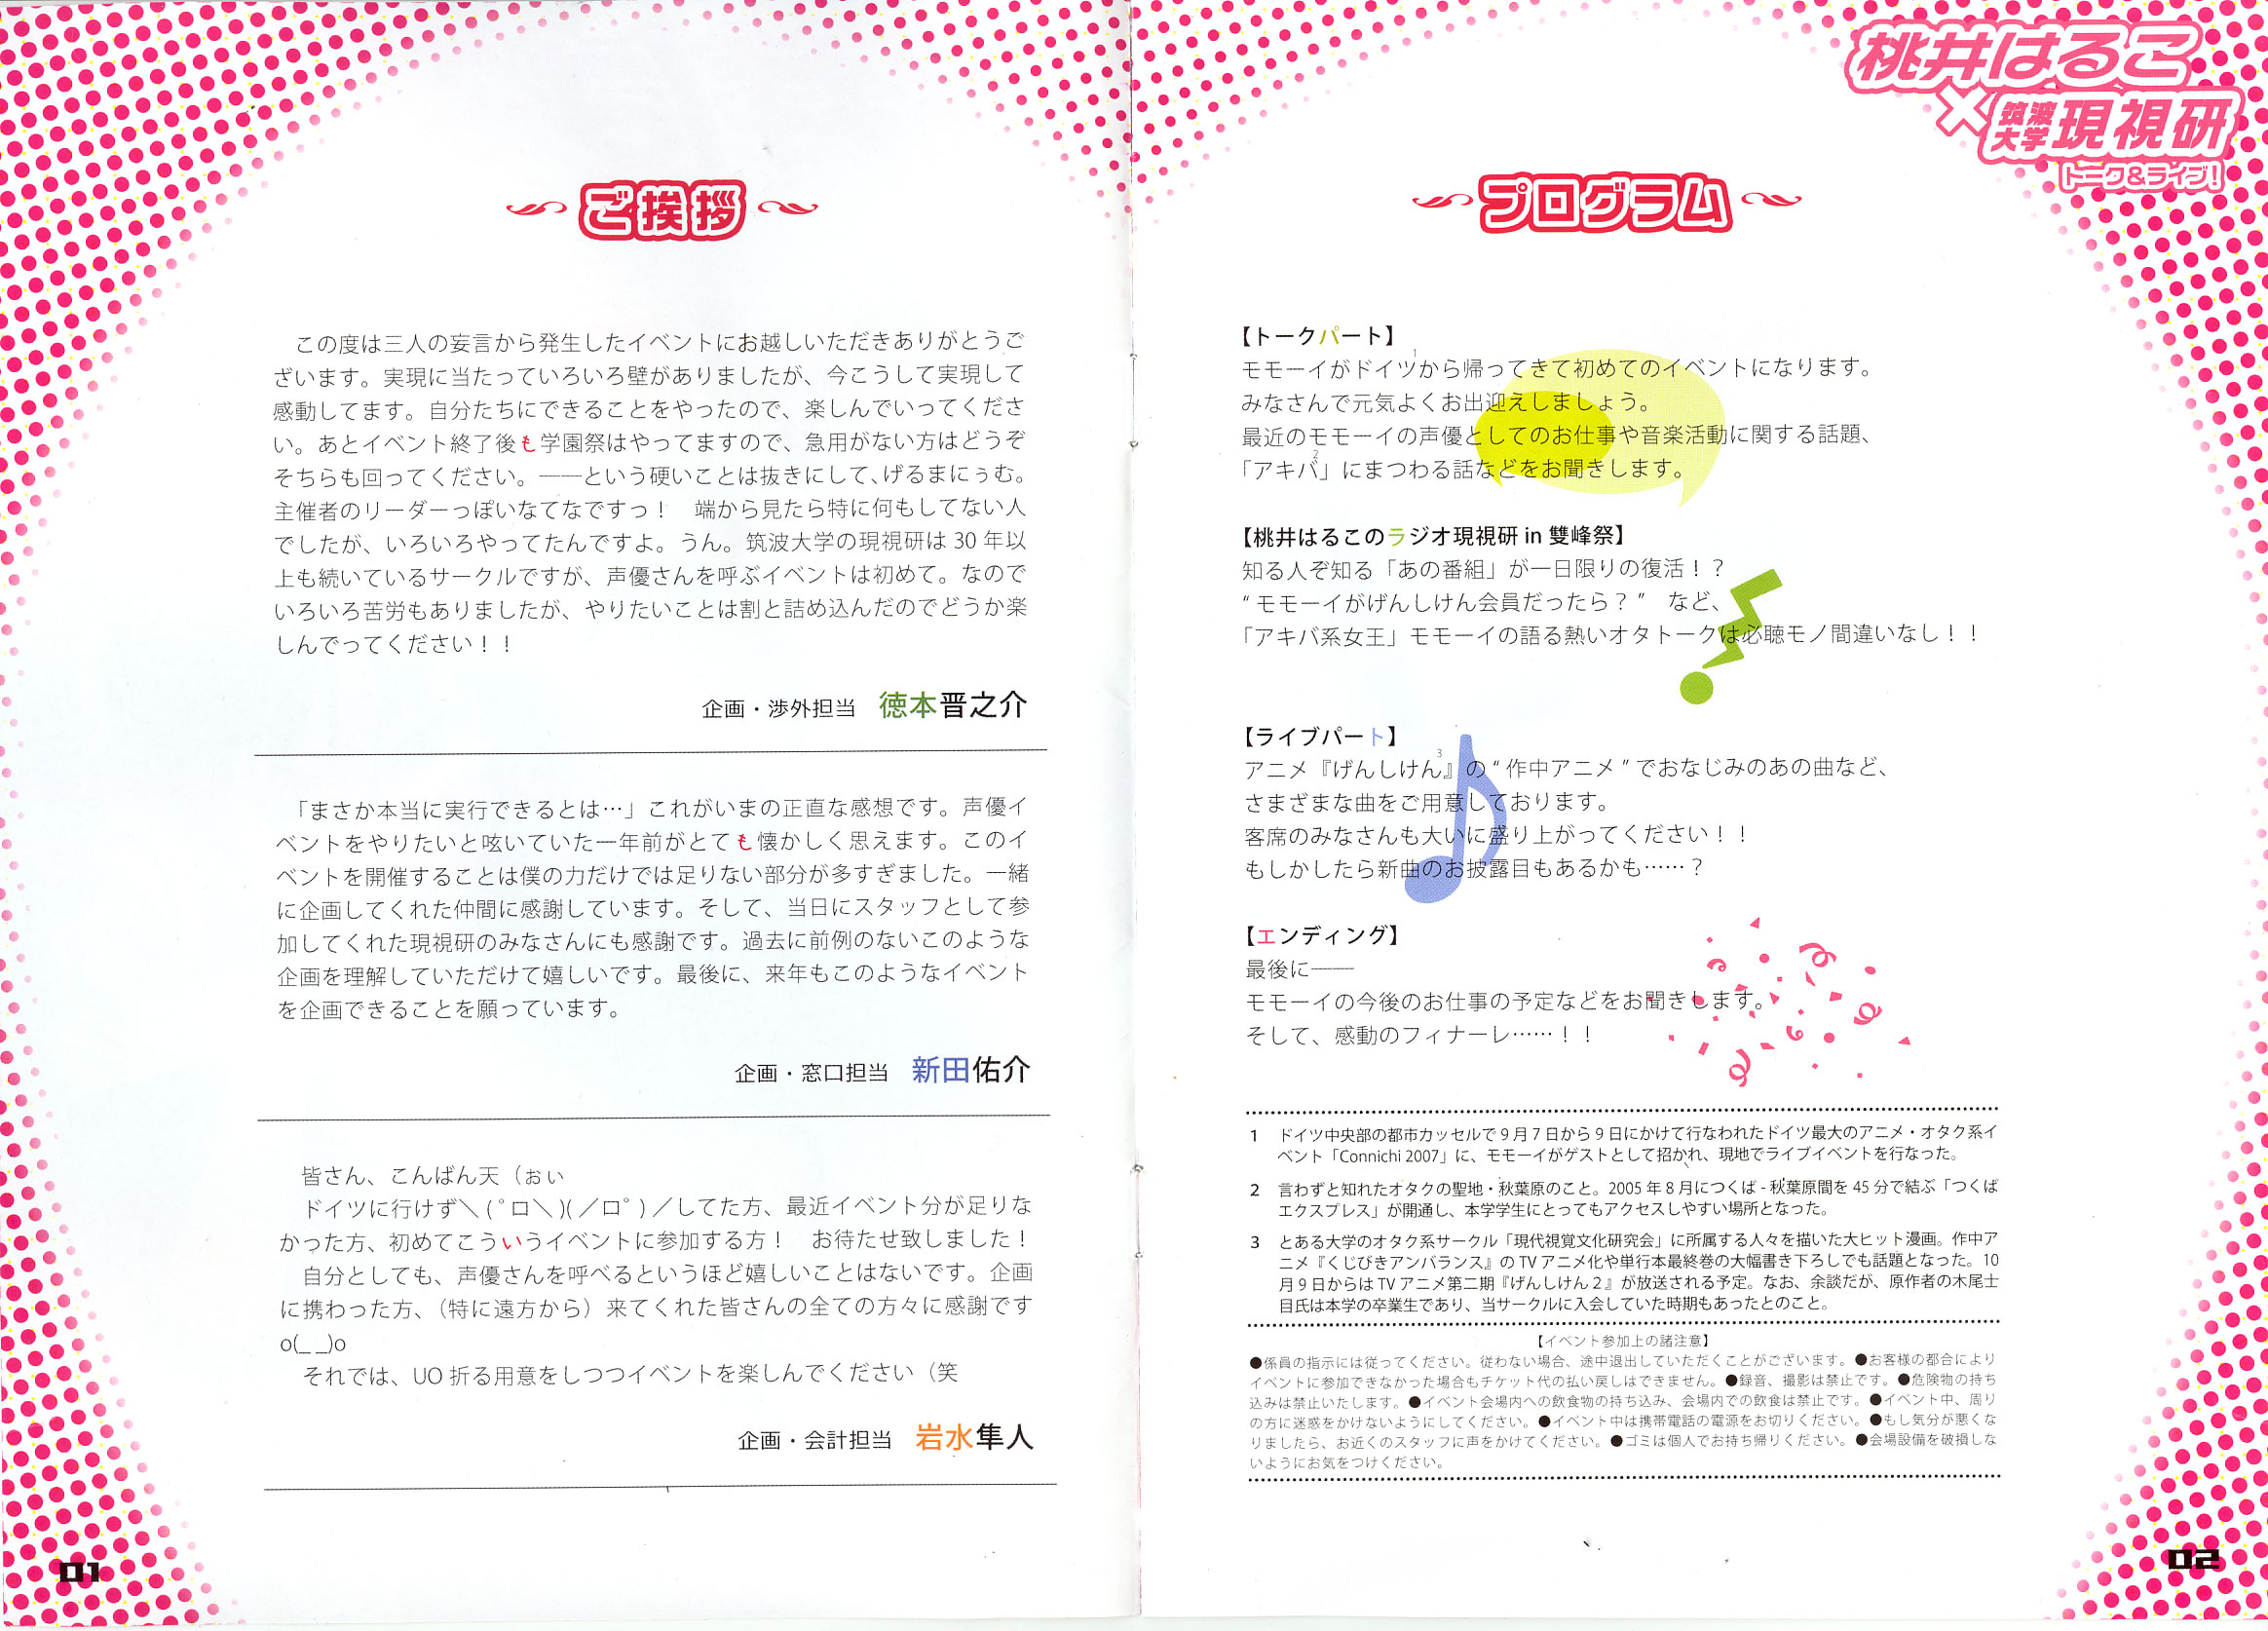 ご挨拶
　この度は三人の妄言から発生したイベントにお越しいただきありがとうご
ざいます。実現に当たっていろいろ壁がありましたが、今こうして実現して
感動してます。自分たちにできることをやったので、楽しんでいってくださ
い。あとイベント終了後も学園祭はやってますので、急用がない方はどうぞ
そちらも回ってください。――という硬いことは抜きにして、げるまにぅむ。
主催者のリーダーっぽいなてなですっ！　端から見たら特に何もしてない人
でしたが、いろいろやってたんですよ。うん。筑波大学の現視研は 30 年以
上も続いているサークルですが、声優さんを呼ぶイベントは初めて。なので
いろいろ苦労もありましたが、やりたいことは割と詰め込んだのでどうか楽
しんでってください！！
企画・渉外担当　徳本晋之介
　「まさか本当に実行できるとは…」これがいまの正直な感想です。声優イ
ベントをやりたいと呟いていた一年前がとても懐かしく思えます。このイ
ベントを開催することは僕の力だけでは足りない部分が多すぎました。一緒
に企画してくれた仲間に感謝しています。そして、当日にスタッフとして参
加してくれた現視研のみなさんにも感謝です。過去に前例のないこのような
企画を理解していただけて嬉しいです。最後に、来年もこのようなイベント
を企画できることを願っています。
企画・窓口担当　新田佑介
　皆さん、こんばん天（ぉぃ
　ドイツに行けず＼(ﾟロ＼)(／ロﾟ)／してた方、最近イベント分が足りな
かった方、初めてこういうイベントに参加する方！　お待たせ致しました！
　自分としても、声優さんを呼べるというほど嬉しいことはないです。企画
に携わった方、（特に遠方から）来てくれた皆さんの全ての方々に感謝です
o(_ _)o
　それでは、UO 折る用意をしつつイベントを楽しんでください（笑
企画・会計担当　岩水隼人
01
桃井はるこ
×筑波大学現視研
トーク&ライブ！
プログラム
【トークパート】
モモーイがドイツ1から帰ってきて初めてのイベントになります。
みなさんで元気よくお出迎えしましょう。
最近のモモーイの声優としてのお仕事や音楽活動に関する話題、
「アキバ2」にまつわる話などをお聞きします。
【桃井はるこのラジオ現視研 in 雙峰祭】
知る人ぞ知る「あの番組」が一日限りの復活！？
“モモーイがげんしけん会員だったら？”　など、
「アキバ系女王」モモーイの語る熱いオタトークは必聴モノ間違いなし！！
【ライブパート】
アニメ『げんしけん3』の“作中アニメ”でおなじみのあの曲など、
さまざまな曲をご用意しております。
客席のみなさんも大いに盛り上がってください！！
もしかしたら新曲のお披露目もあるかも……？
【エンディング】
最後に――
モモーイの今後のお仕事の予定などをお聞きします。
そして、感動のフィナーレ……！！
1　ドイツ中央部の都市カッセルで 9 月 7 日から 9 日にかけて行なわれたドイツ最大のアニメ・オタク系イ
ベント「Connichi 2007」に、モモーイがゲストとして招かれ、現地でライブイベントを行なった。
2　言わずと知れたオタクの聖地・秋葉原のこと。2005 年 8 月につくば - 秋葉原間を 45 分で結ぶ「つくば
エクスプレス」が開通し、本学学生にとってもアクセスしやすい場所となった。
3　とある大学のオタク系サークル「現代視覚文化研究会」に所属する人々を描いた大ヒット漫画。作中ア
ニメ『くじびきアンバランス』の TV アニメ化や単行本最終巻の大幅書き下ろしでも話題となった。10
月 9 日からは TV アニメ第二期『げんしけん 2 』が放送される予定。なお、余談だが、原作者の木尾士
目氏は本学の卒業生であり、当サークルに入会していた時期もあったとのこと。
【イベント参加上の諸注意】
●係員の指示には従ってください。従わない場合、途中退出していただくことがございます。●お客様の都合により
イベントに参加できなかった場合もチケット代の払い戻しはできません。●録音、撮影は禁止です。●危険物の持ち
込みは禁止いたします。●イベント会場内への飲食物の持ち込み、会場内での飲食は禁止です。●イベント中、周り
の方に迷惑をかけないようにしてください。●イベント中は携帯電話の電源をお切りください。●もし気分が悪くな
りましたら、お近くのスタッフに声をかけてください。●ゴミは個人でお持ち帰りください。●会場設備を破損しな
いようにお気をつけください。
02